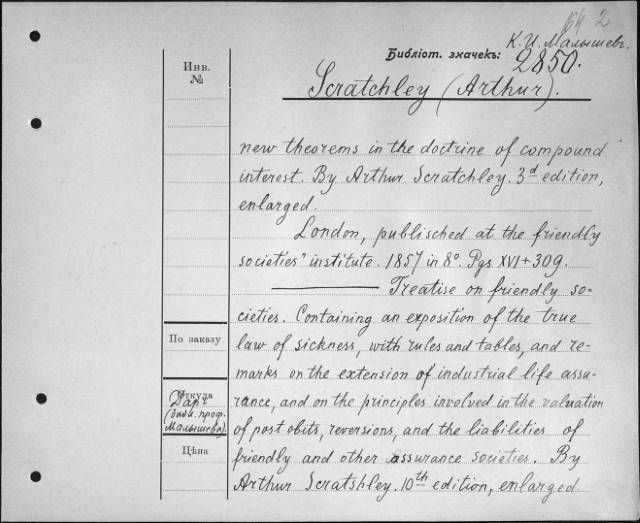 64 2
К. И. Малышевъ.
Библіот. значекъ: 2850.
Инв.
№
Scratchley (Arthur).
new theorems in the doctrine of compound
interest. By Arthur Scratchley. 3d edition,
enlarged.
London, publisched at the friendly
societies' institute. 1857 in 8°. Pgs XVI+309.
Treatise on friendly so-
cieties. Containing an exposition of the true
law of sickness, with rules and tables, and re-
marks on the extension of industrial life assu-
rance, and on the principles involved in the valuation
of post obits, reversions, and the liabilities of
friendly and other assurance societies. By
Arthur Scratshley. 10th edition, enlarged.
По заказу
Откуда
Даръ
проф.
Малышева).
Цѣна